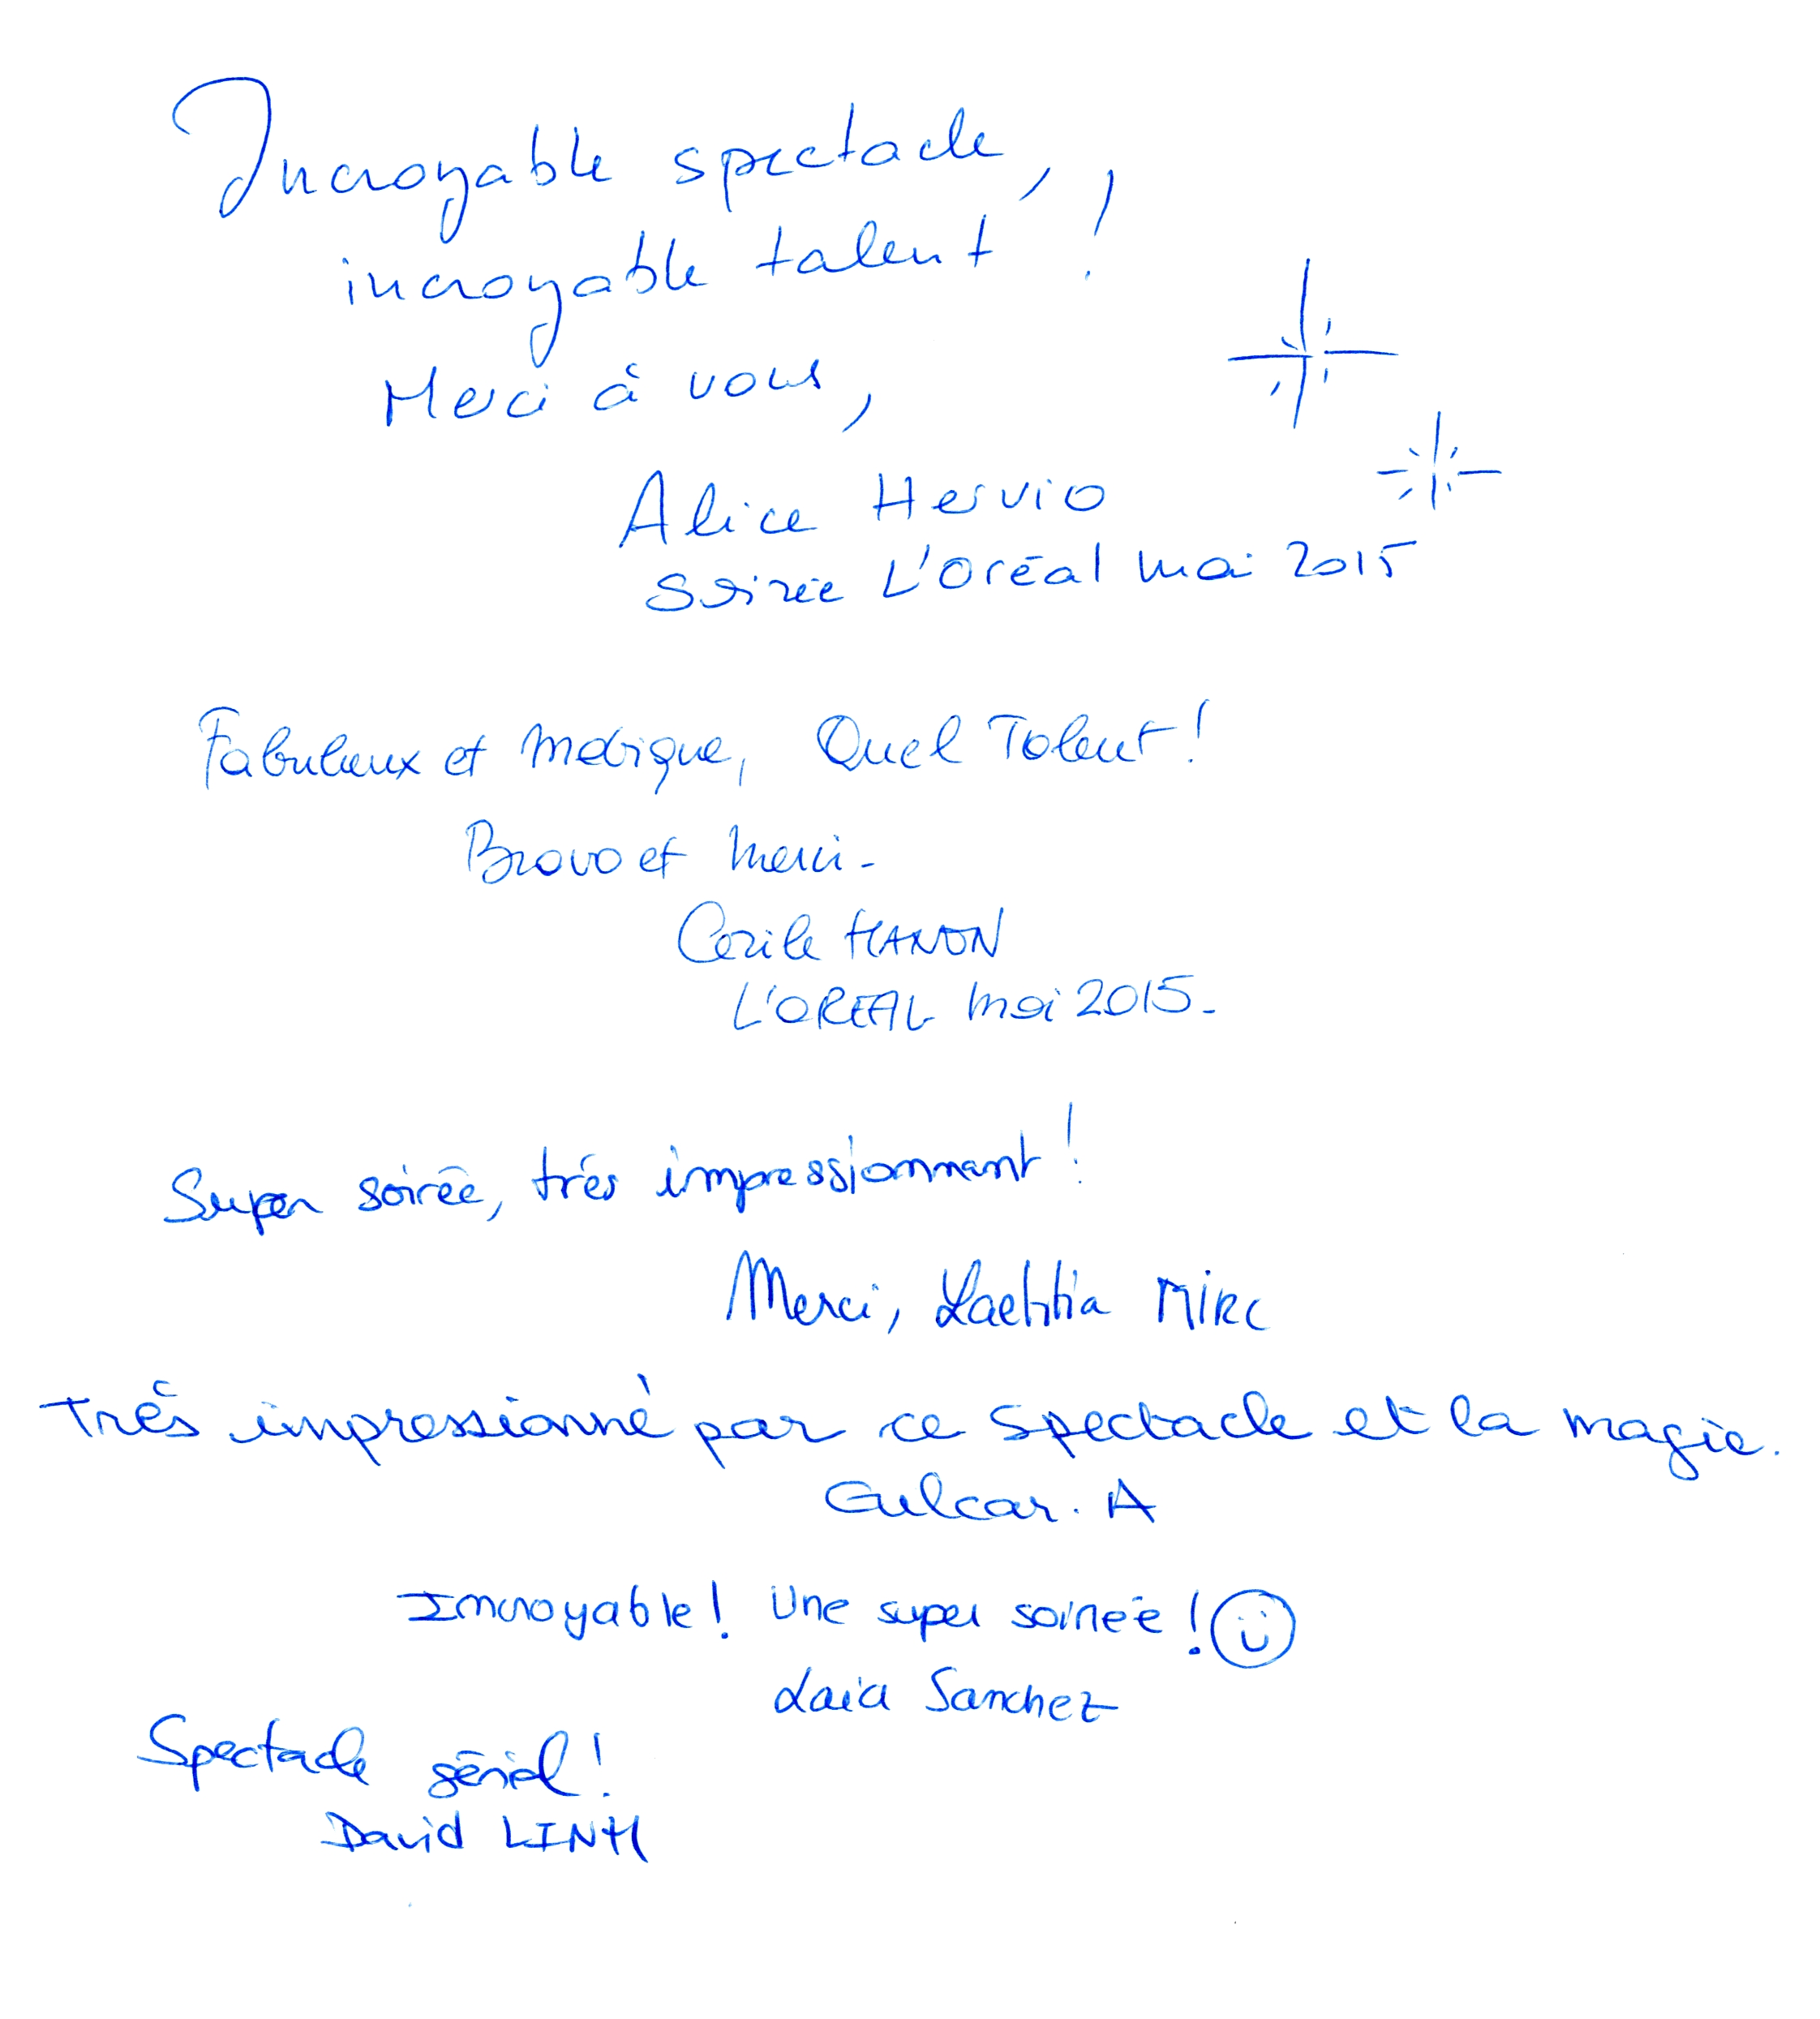 Incroyable spectacle,
incroyable talent !
Merci à vous,
Alice Hervio
soirée L'Oréal mai 2015
Fabuleux et magique, Quel Talent !
Bravo et merci -
Cécile HANON
L'OREAL mai 2015 -
Super soirée, très impressionnant !
Merci, Laetitia MIRC
Très impressionné par ce spectacle et la magie.
Gulcar. A
Incroyable ! Une super soirée !
Laia Sanchez
Spectacle génial !
David LINH